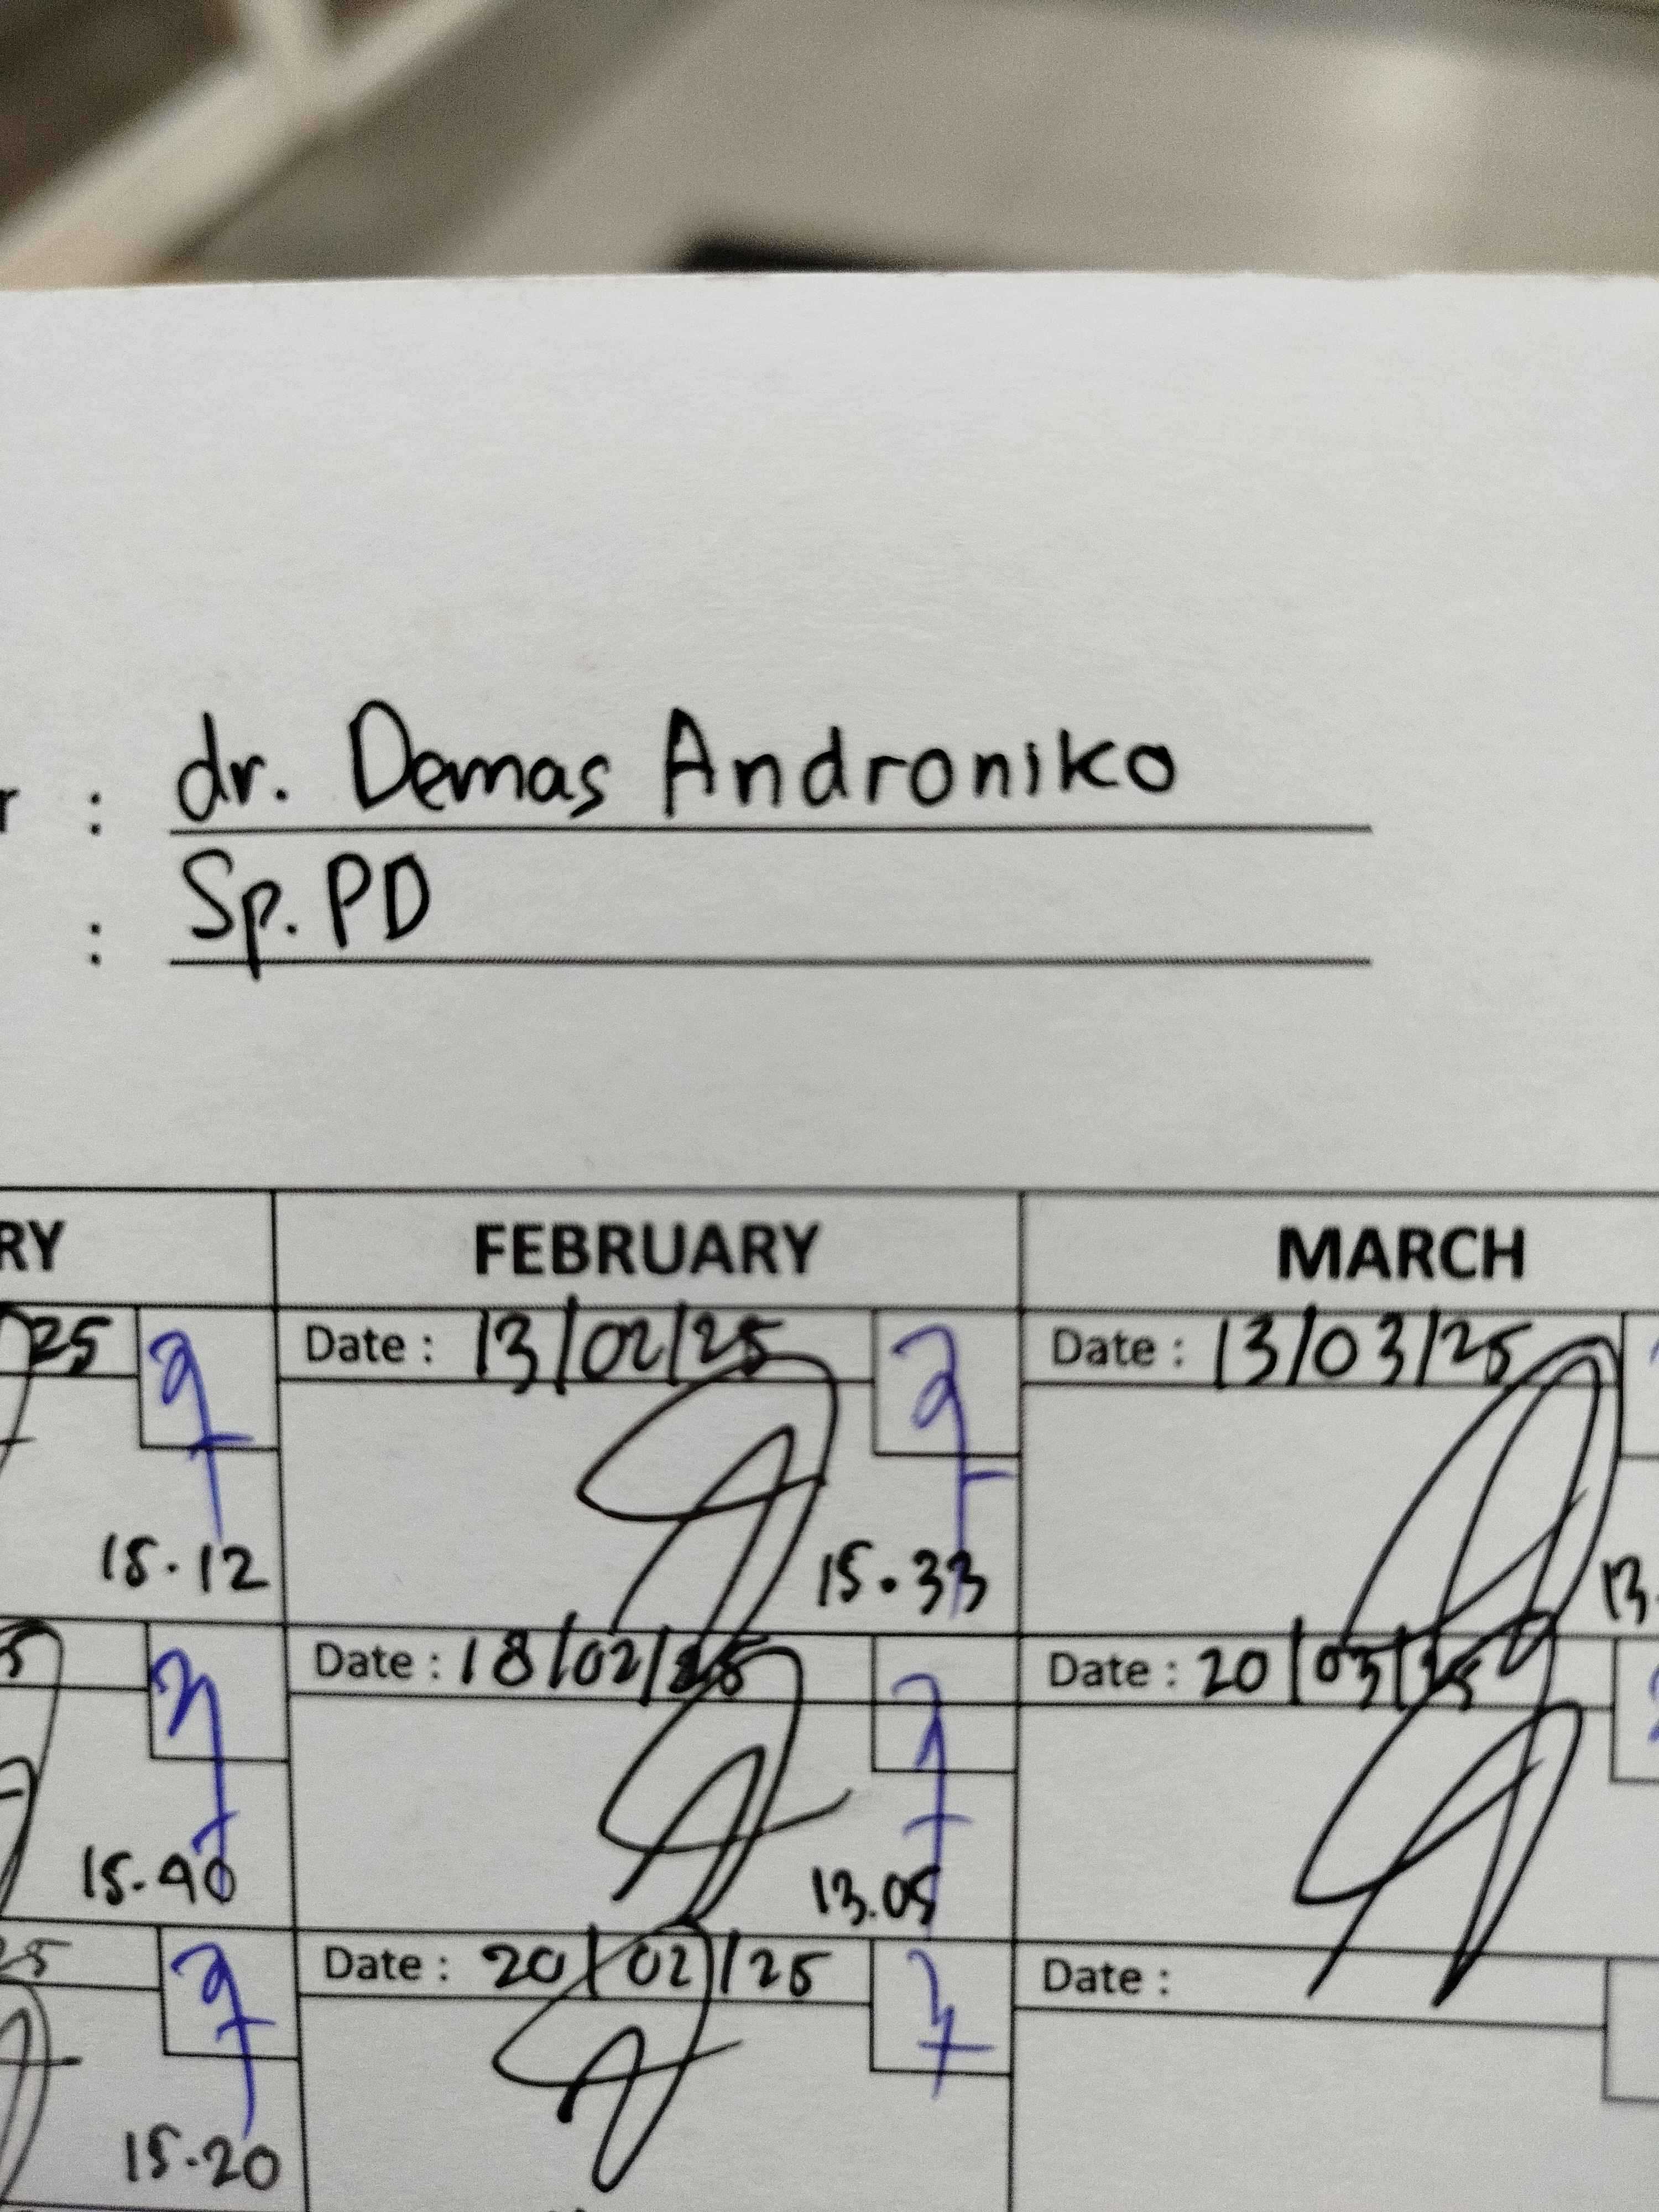 r : dr. Demas Androniko
: Sp. PD
RY FEBRUARY MARCH
25 Date : 13/02/25 Date : 13/03/25
15.12 15.33 13.
Date : 18/02/25 Date : 20/03/25
15.40 13.05
25 Date : 20/02/25 Date :
15.20